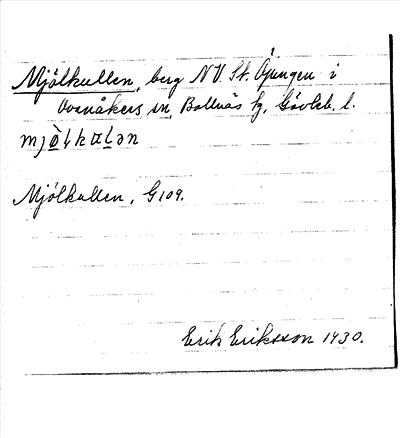 Mjölkullen, berg NV. St. Öjungen i
Ovanåkers sn, Bollnäs fg, Gävleb. l.
mjö̀lkuḷən
Mjölkullen, G109.
Erik Eriksson 1930.